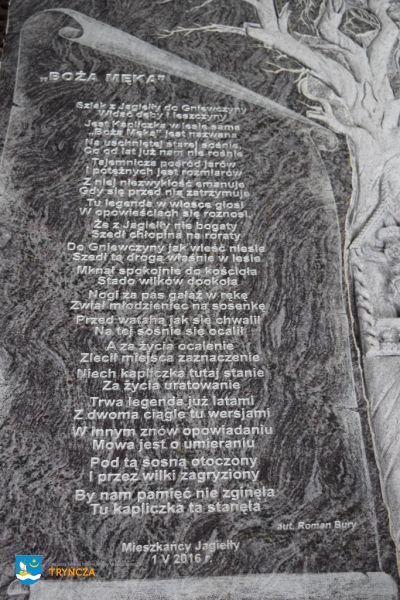 „BOŻA MĘKA”
Szlak z Jagiełły do Gniewczyny
Widać dęby i leszczyny
Jest Kapliczka w lesie sama
„Boża Męka” jest nazwana
Na uschniętej starej sośnie
Co od lat już nam nie rośnie
Tajemnicza pośród jarów
I potężnych jest rozmiarów
Z niej niezwykłość emanuje
Gdy się przed nią zatrzymuje
Tu legenda w wiosce głosi
W opowieściach się roznosi
Że z Jagiełły nie bogaty
Szedł chłopina na roraty
Do Gniewczyny jak wieść niesie
Szedł tą drogą właśnie w lesie
Mknął spokojnie do kościoła
Stado wilków dookoła
Nogi za pas gałąź w rękę
Zwiał młodzieniec na sosenkę
Przed watahą jak się chwalił
Na tej sośnie się ocalił
A za życia ocalenie
Zlecił miejsca zaznaczenie
Niech kapliczka tutaj stanie
Za życia uratowanie
Trwa legenda już latami
Z dwoma ciągle tu wersjami
W innym znów opowiadaniu
Mowa jest o umieraniu
Pod tą sosną otoczony
I przez wilki zagryziony
By nam pamięć nie zginęła
Tu kapliczka ta stanęła
aut. Roman Bury
Mieszkańcy Jagiełły
1 V 2016 r.
TRYŃCZA